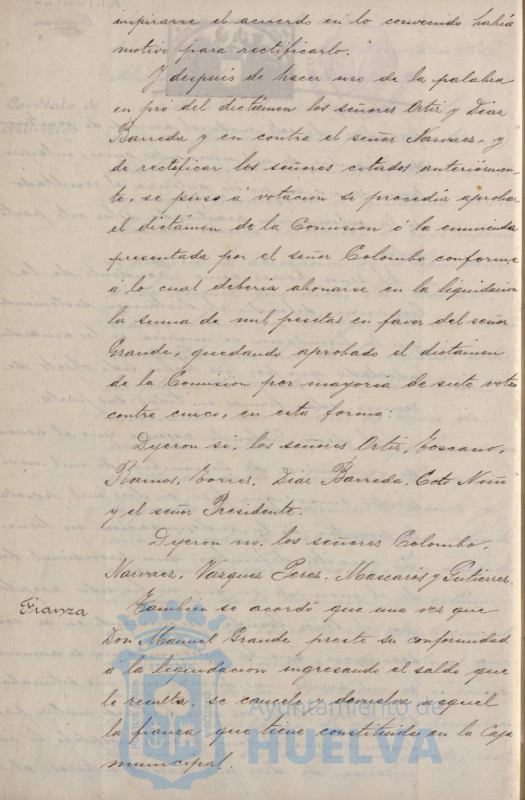 inspirarse el acuerdo en lo convenido habia
motivo para rectificarlo.
Y después de hacer uso de la palabra
en pró del dictámen los señores Ortiz y Diaz
Barreda y en contra el señor Narvaez, y
de rectificar los señores citados anteriormen-
te, se puso á votacion si procedia aprobar
el dictámen de la Comision ó la enmienda
presentada por el señor Colombo conforme
á lo cual deberia abonarse en la liquidacion
la suma de mil pesetas en favor del señor
Grande, quedando aprobado el dictámen
de la Comision por mayoria de siete votos
contra cinco, en esta forma:
Dijeron si, los señores Ortiz, Toscano,
Ramos, Torres, Diaz Barreda, Coto Niño
y el señor Presidente.
Dijeron no, los señores Colombo,
Narvaez, Vazquez Perez, Mascarós y Gutierrez.
Fianza
Tambien se acordó que una vez que
Don Manuel Grande preste su conformidad
á la liquidacion ingresando el saldo que
le resulta, se cancele y devuelva á aquel
la fianza que tiene constituida en la Caja
municipal.
Ayuntamiento de
HUELVA